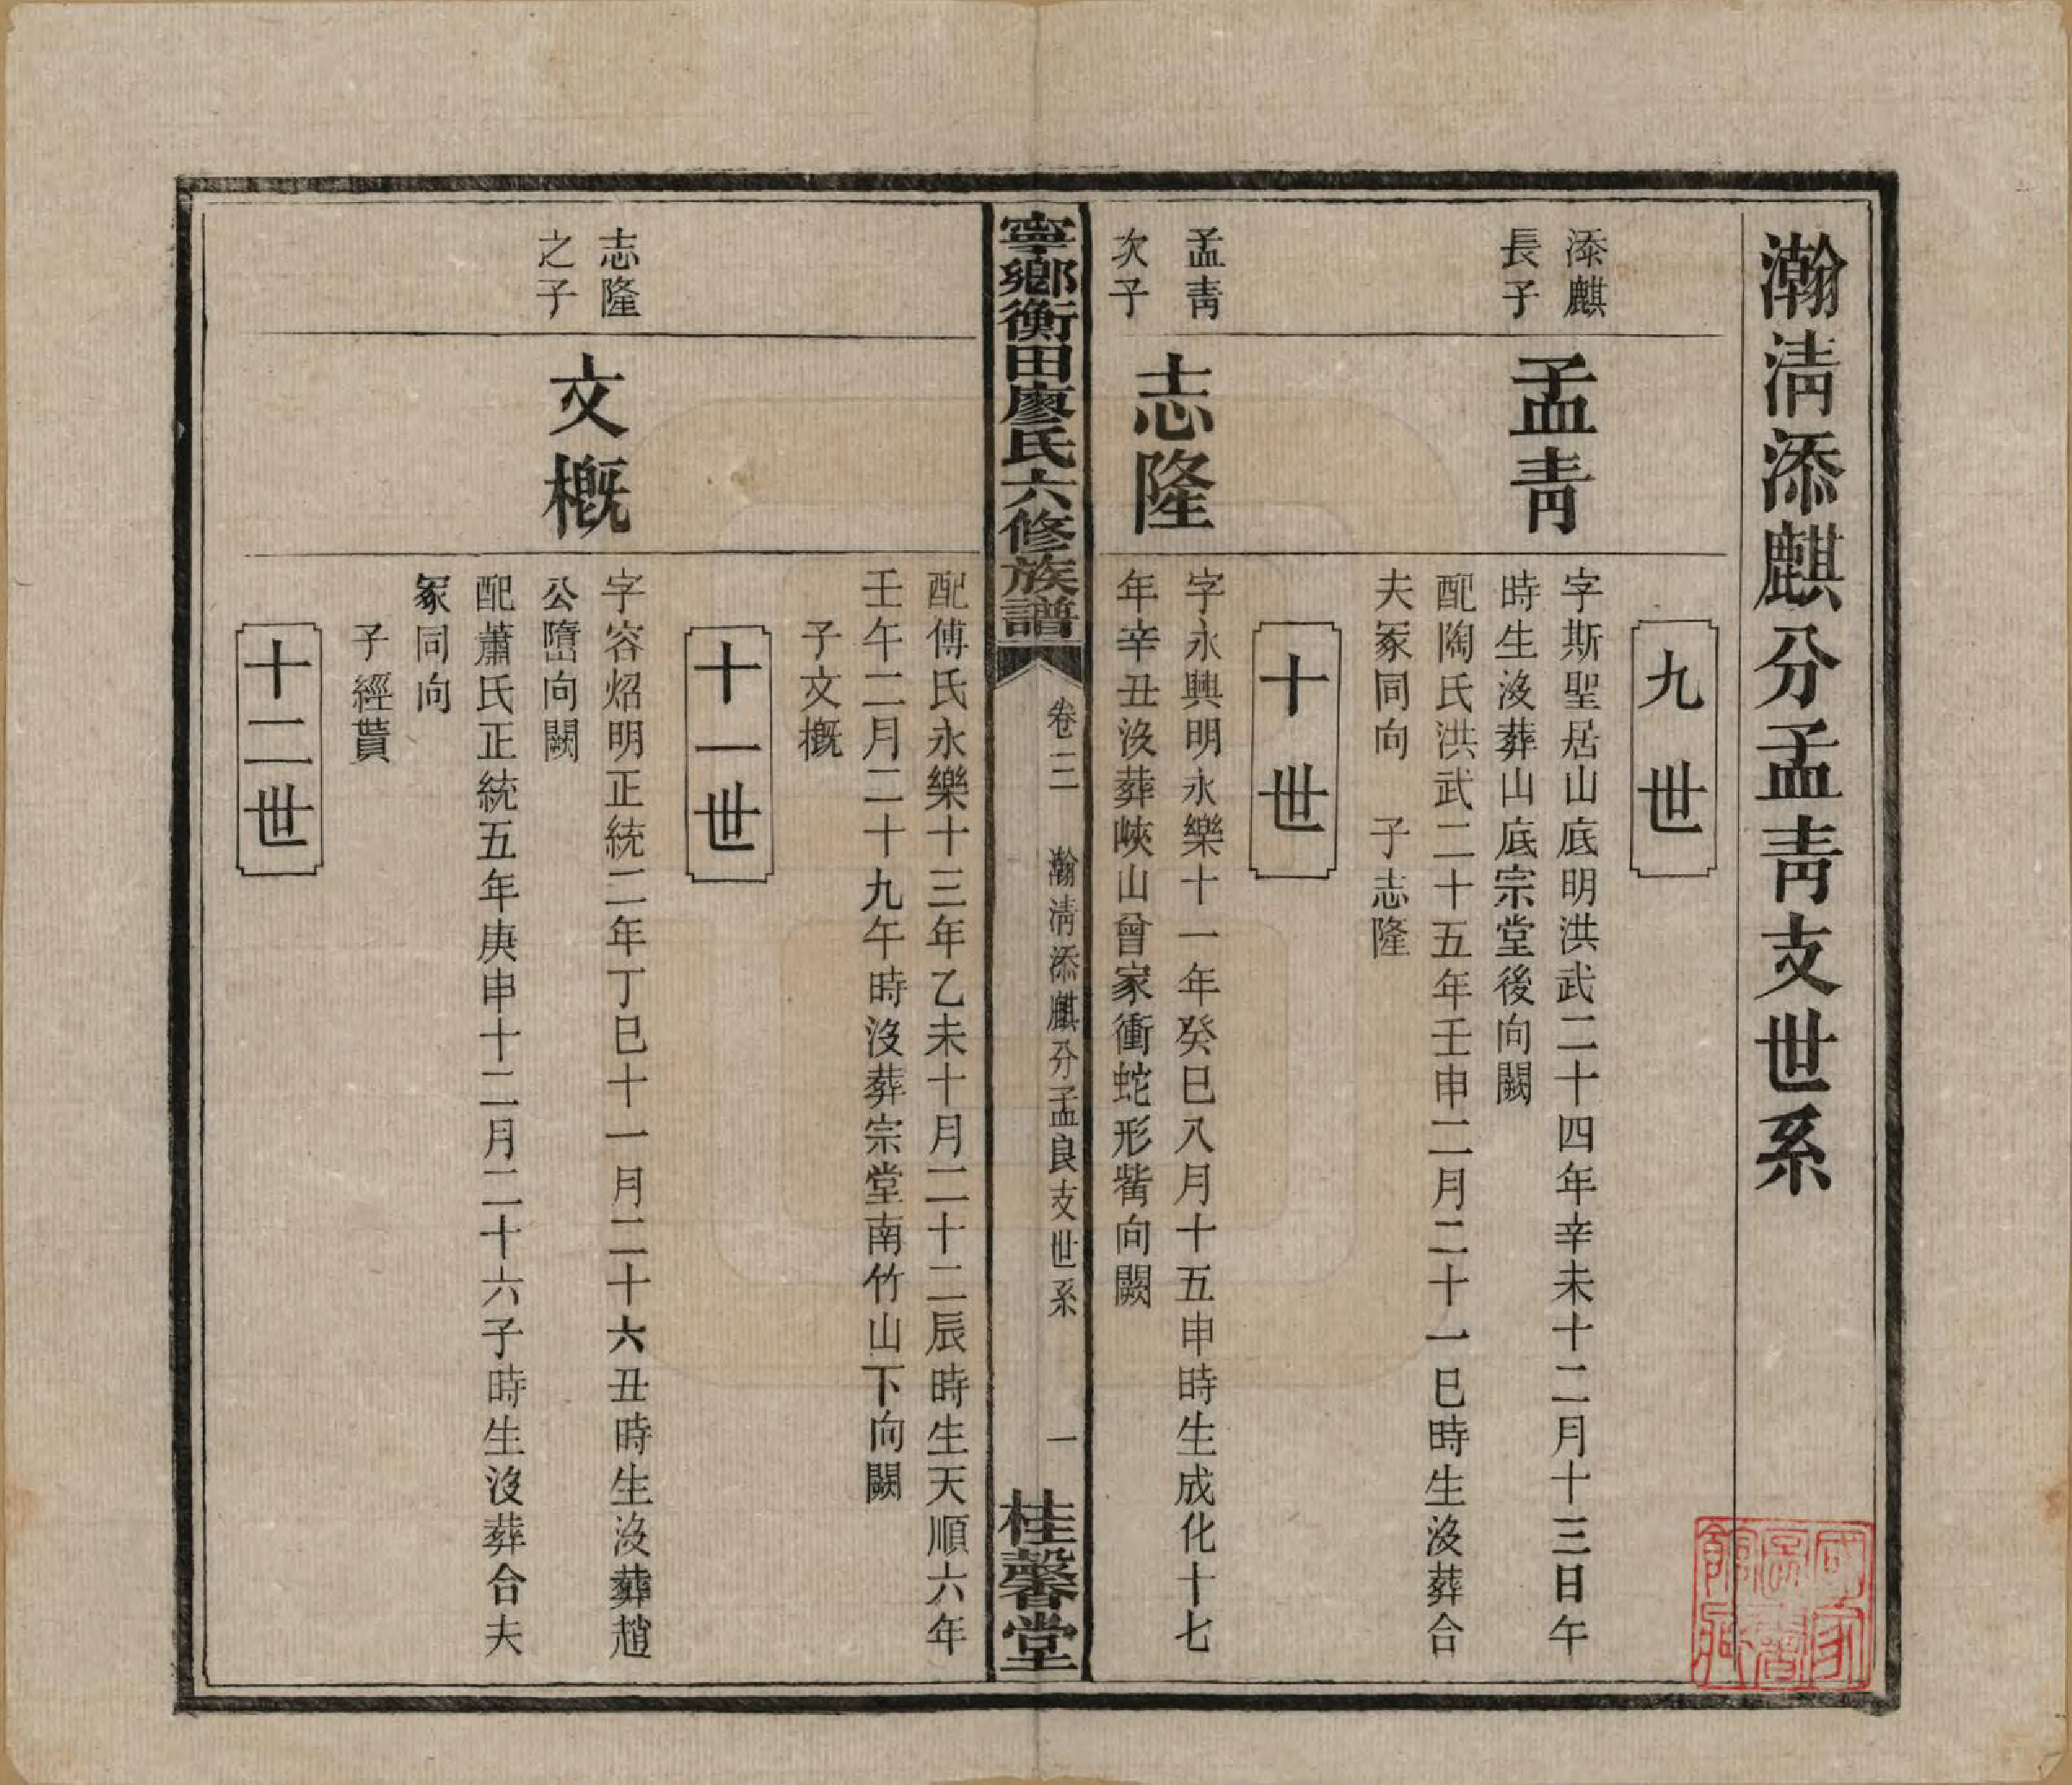 瀚淸添麒分孟靑支世系
九世
添麒
長子
孟靑
字斯聖居山底明洪武二十四年辛未十二月十三日午
時生沒葬山底宗堂後向闕
配陶氏洪武二十五年壬申二月二十一巳時生沒葬合
夫冢同向　子志隆
十世
孟靑
次子
志隆
字永興明永樂十一年癸巳八月十五申時生成化十七
年辛丑沒葬峽山曾家衝蛇形觜向闕
寧鄉衡田廖氏六修族譜
卷二　瀚淸添麒分孟良支世系　一
桂馨堂
配傅氏永樂十三年乙未十月二十二辰時生天順六年
壬午二月二十九午時沒葬宗堂南竹山下向闕
子文概
十一世
志隆
之子
文概
字容炤明正統二年丁巳十一月二十六丑時生沒葬趙
公墮向闕
配蕭氏正統五年庚申十二月二十六子時生沒葬合夫
冢同向
子經貲
十二世
國家圖書館藏